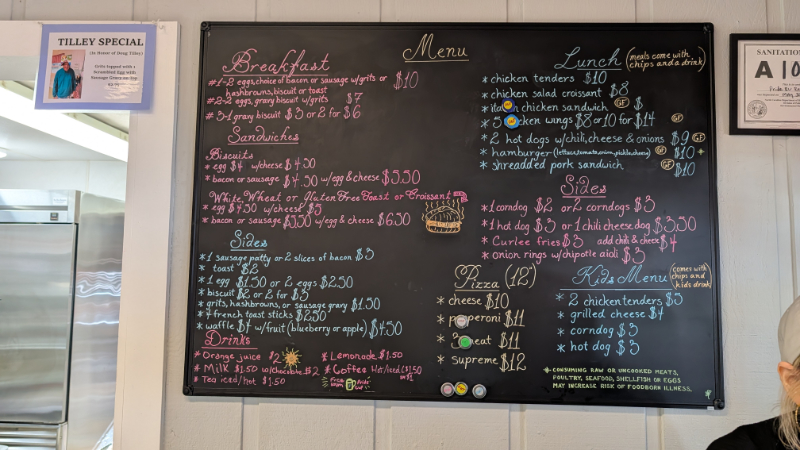 TILLEY SPECIAL
(In Honor of Doug Tilley)
Grits topped with a
Scrambled Egg with
Menu
Breakfast
#1-2 eggs, choice of bacon or sausage w/grits or
hashbrowns, biscuit or toast $10
#2-2 eggs, gravy biscuit w/grits $7
#3-1 gravy biscuit $3 or 2 for $6
Sandwiches
Biscuits
* egg $4 w/cheese $4.50
* bacon or sausage $4.50 w/egg & cheese $5.50
White, Wheat or Gluten Free Toast or Croissant
* egg $4.50 w/cheese $5
* bacon or sausage $5.50 w/egg & cheese $6.50
Sides
*1 sausage patty or 2 slices of bacon $3
* toast $2
*1 egg $1.50 or 2 eggs $2.50
* biscuit $2 or 2 for $3
* grits, hashbrowns, or sausage gravy $1.50
* 4 french toast sticks $2.50
* waffle $4 w/fruit (blueberry or apple) $4.50
Drinks
* Orange juice $2
* Milk $1.50 w/chocolate $2
* Tea iced/hot $1.50
* Lemonade $1.50
* Coffee Hot/Iced $1.50
Lunch (meals come with
chips and a drink)
* chicken tenders $10
* chicken salad croissant $8
* chicken sandwich GF $
* 5 wings $8 or 10 for $14 GF
* 2 hot dogs w/chili, cheese & onions $9 GF
* hamburger (lettuce, tomato, onion, pickle, cheese) GF $10 +
* shreadded pork sandwich GF $10
Sides
* 1 corndog $2 or 2 corndogs $3
* 1 hot dog $3 or 1 chili cheese dog $3.50
* Curlee fries $3 add chili & cheese $4
* onion rings w/chipotle aioli $3
Pizza (12")
* cheese $10
* pepperoni $11
* meat $11
* supreme $12
Kids Menu (comes with
chips and
kids drink)
* 2 chicken tenders $5
* grilled cheese $4
* corndog $3
* hot dog $3
+ CONSUMING RAW OR UNCOOKED MEATS,
POULTRY, SEAFOOD, SHELLFISH OR EGGS
MAY INCREASE RISK OF FOODBORN ILLNESS.
SANITATION
A 10